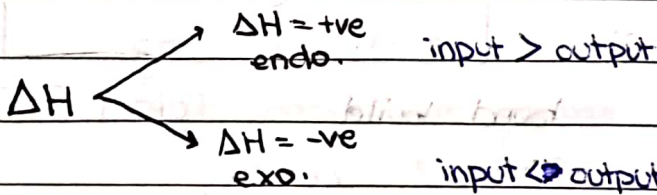 ΔH = +ve
endo. input > output
ΔH
ΔH = -ve
exo. input < output